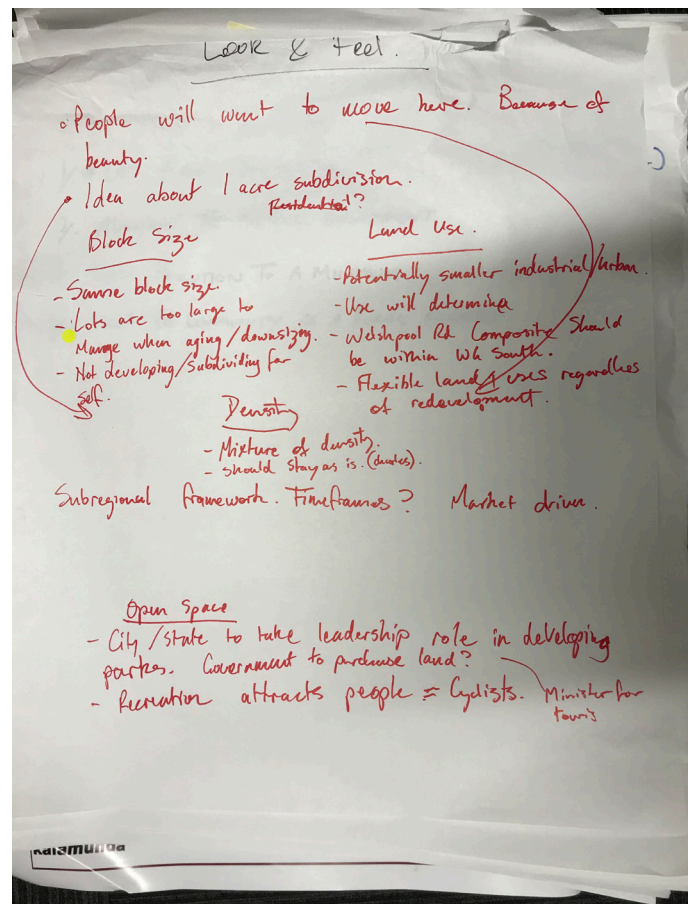 Look & Feel.
People will want to move here. Because of
beauty.
Idea about 1 acre subdivision.
Residential?
Block Size
- Same block size.
- Lots are too large to
Manage when aging/downsizing.
- Not developing/Subdividing for
self.
Land Use.
- Potentially smaller industrial/urban.
- Use will determine
- Welshpool Rd Composite Should
be within WG South.
- Flexible land uses regardless
of redevelopment.
Density
- Mixture of density.
- Should stay as is.
Subregional framework. Timeframes? Market driven.
Open Space
- City/State to take leadership role in developing
parks. Government to purchase land?
- Recreation attracts people = Cyclists.
Minister for
touris
Kalamunda